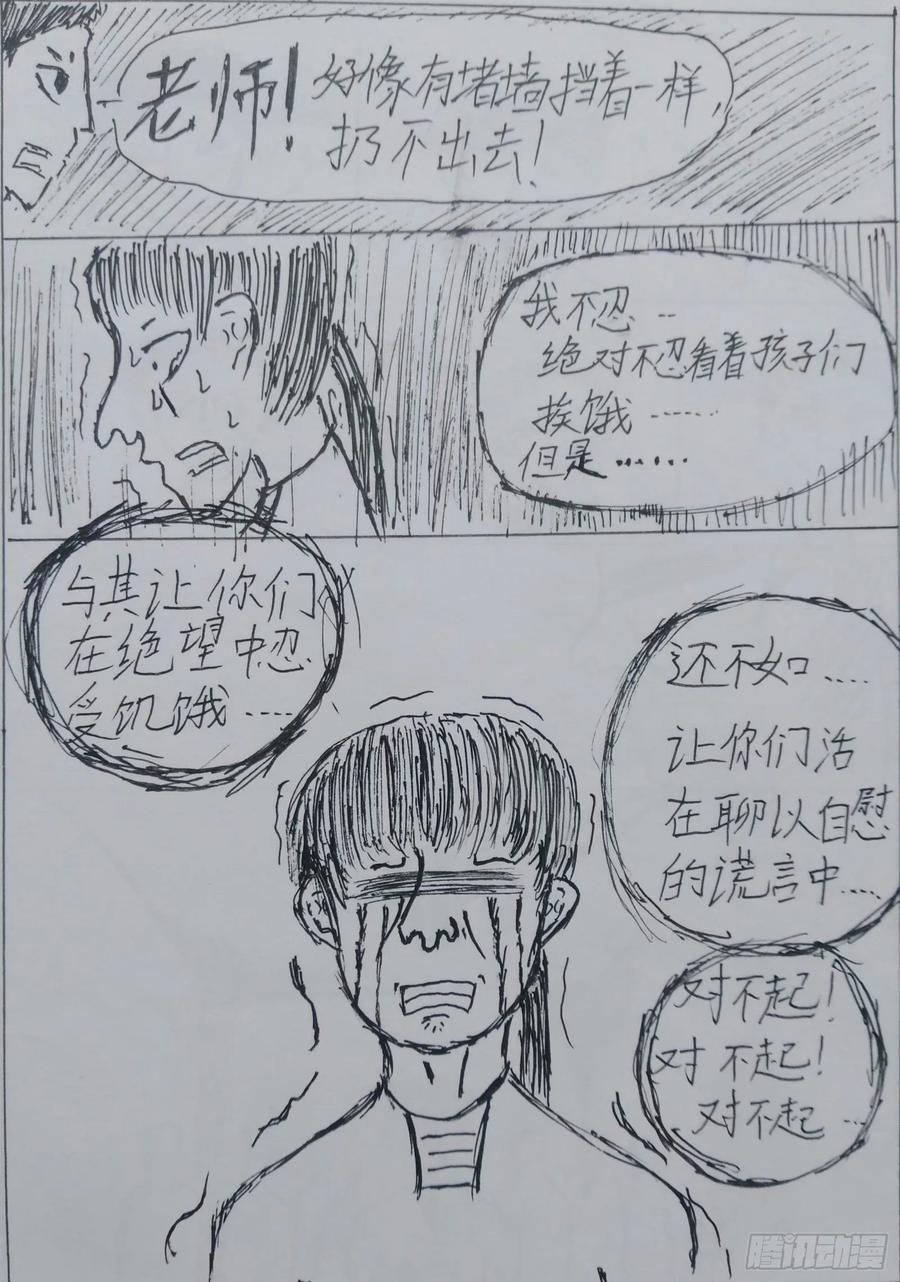 老师！好像有堵墙挡着一样，
扔不出去！
我不忍..
绝对不忍看着孩子们
挨饿......
但是......
与其让你们
在绝望中忍
受饥饿.....
还不如....
让你们活
在聊以自慰
的谎言中....
对不起！
对不起！
对不起...
腾讯动漫